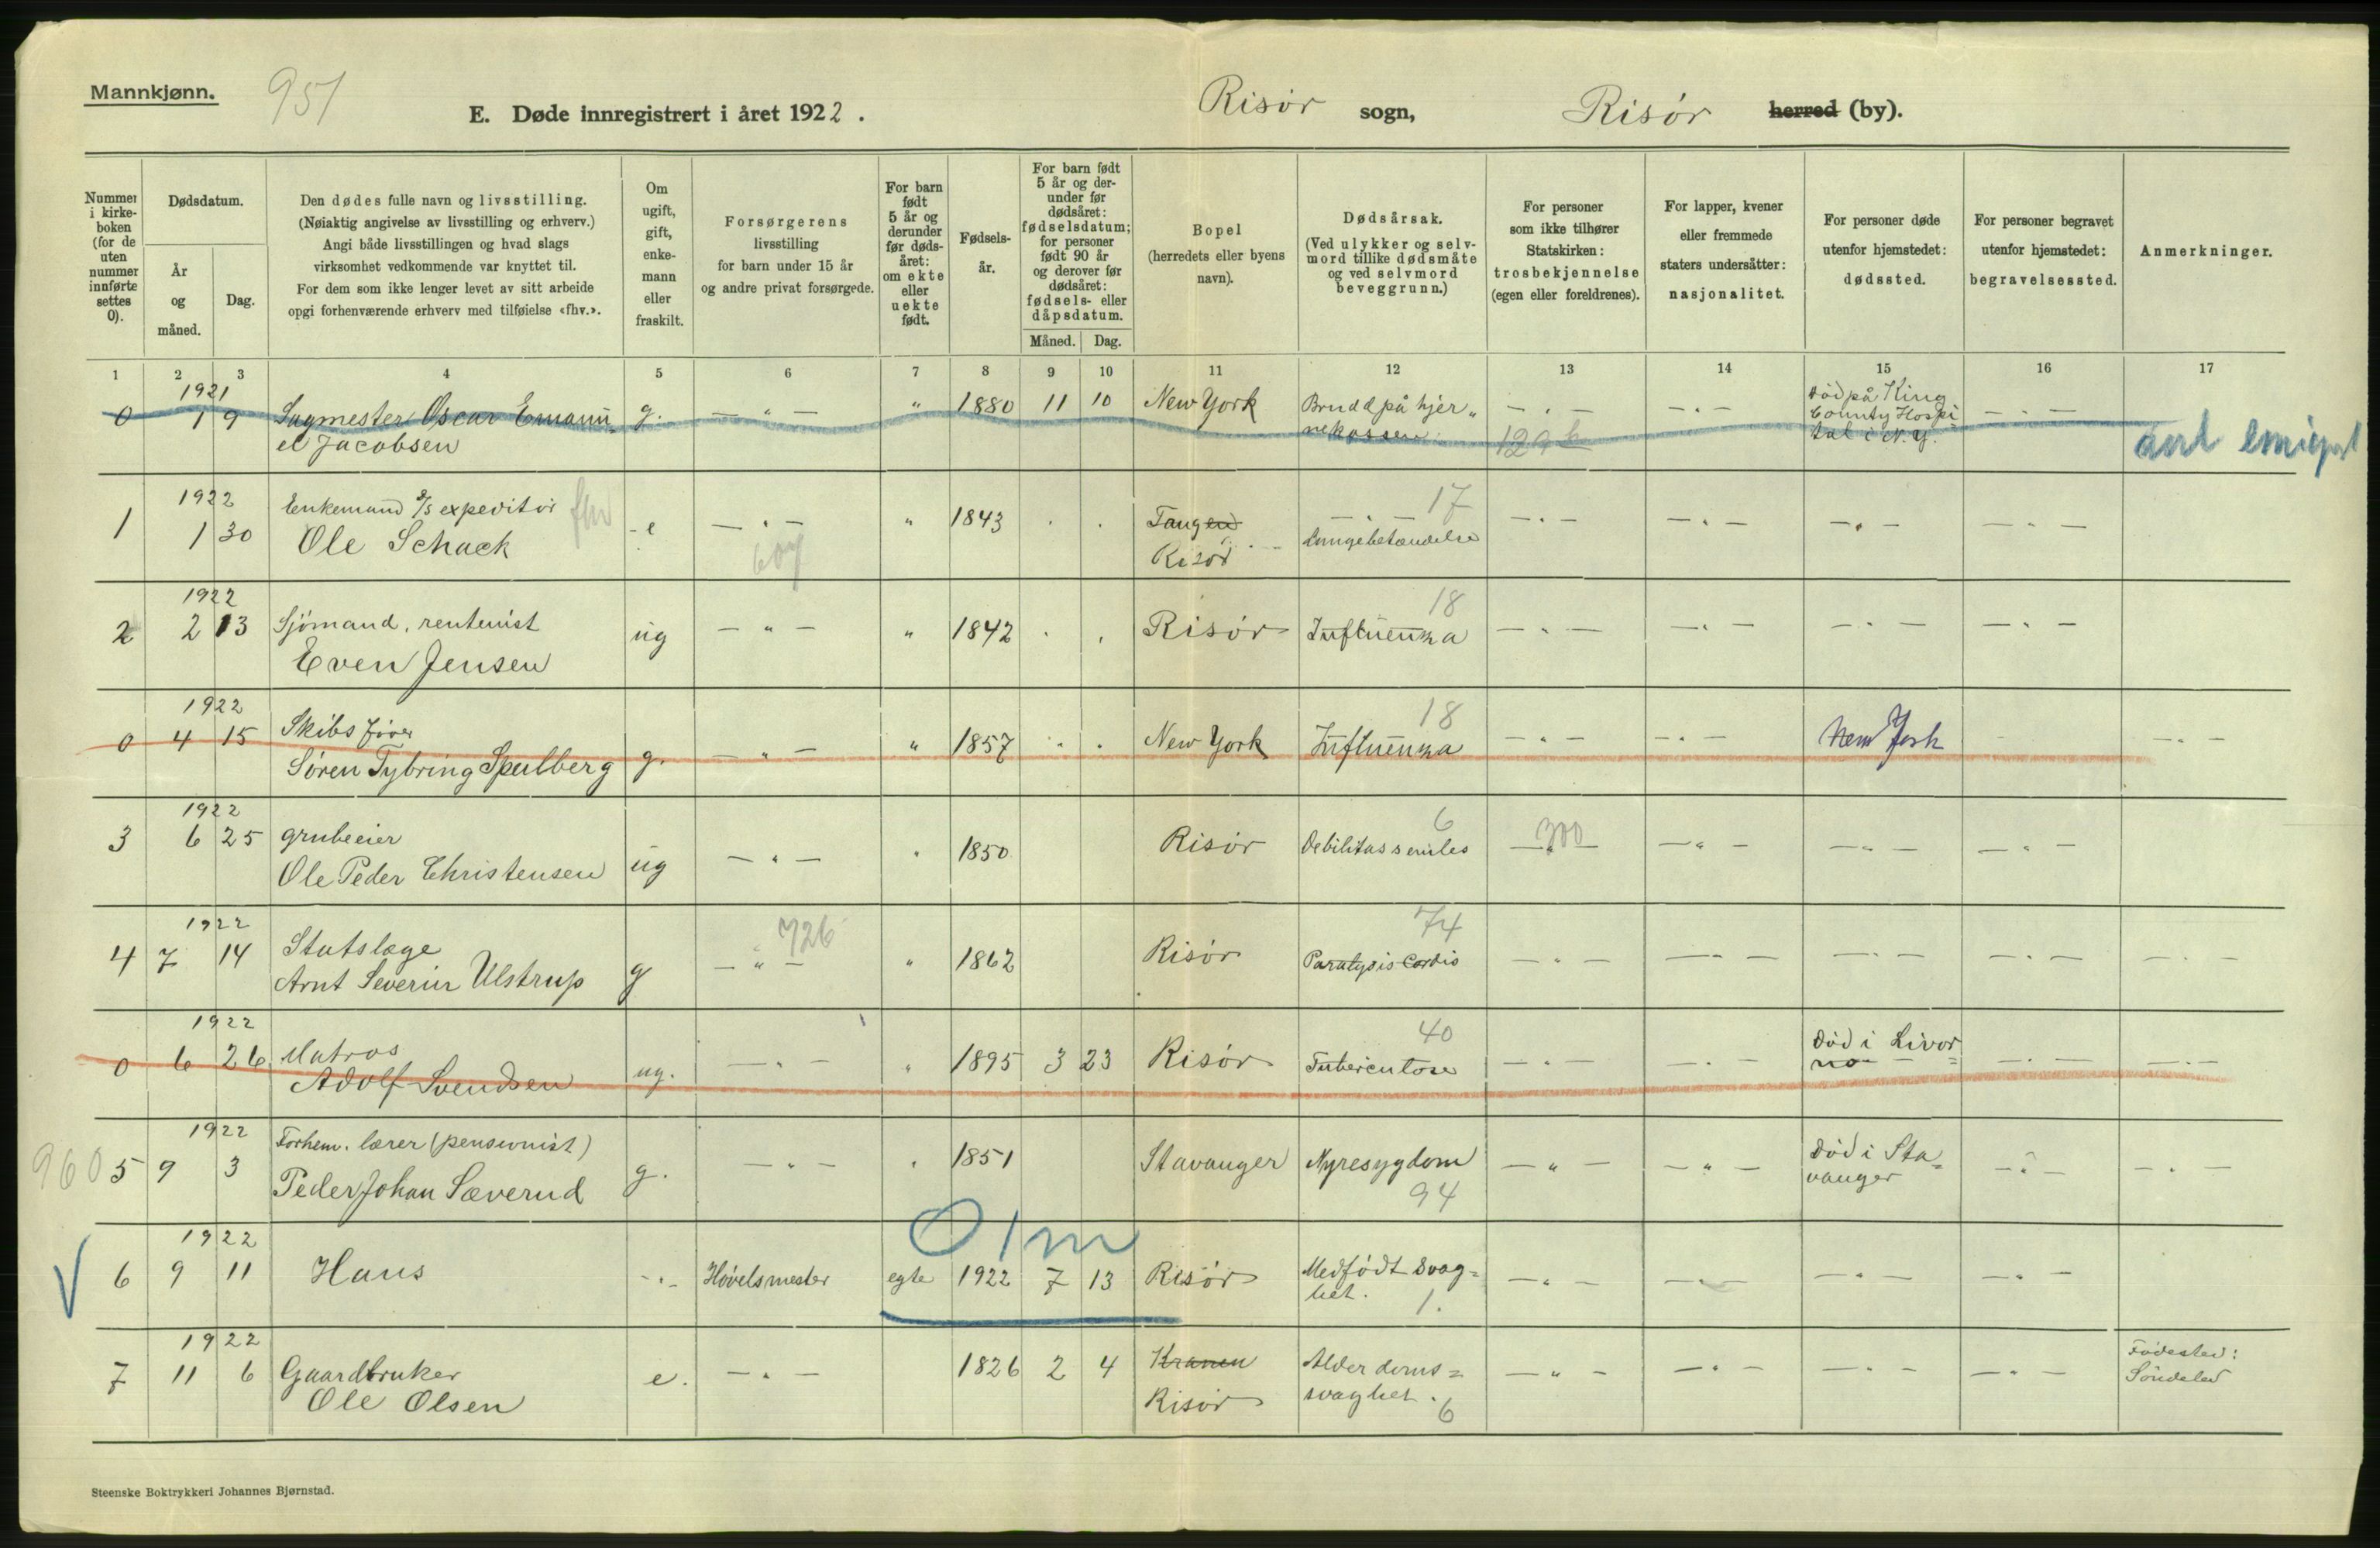 Mannkjønn.
951
E. Døde innregistrert i året 1922.
Risør sogn,
Risør herred (by).
Nummer i kirke-boken (for de uten nummer innførte settes 0).
Dødsdatum.
År og måned.
Dag.
Den dødes fulle navn og livsstilling.
(Nøiaktig angivelse av livsstilling og erhverv.)
Angi både livsstillingen og hvad slags
virksomhet vedkommende var knyttet til.
For dem som ikke lenger levet av sitt arbeide
opgi forhenværende erhverv med tilføielse «fhv.».
Om ugift, gift, enke-mann eller fraskilt.
Forsørgerens
livsstilling
for barn under 15 år
og andre privat forsørgede.
For barn født 5 år og derunder før døds-året: om ekte eller uekte født.
Fødsels-år.
For barn født 5 år og der-under før dødsåret: fødselsdatum; for personer født 90 år og derover før dødsåret: fødsels- eller dåpsdatum.
Måned. Dag.
Bopel
(herredets eller byens
navn).
Dødsårsak.
(Ved ulykker og selv-
mord tillike dødsmåte
og ved selvmord
beveggrunn.)
For personer
som ikke tilhører
Statskirken:
trosbekjennelse
(egen eller foreldrenes).
For lapper, kvener
eller fremmede
staters undersåtter:
nasjonalitet.
For personer døde
utenfor hjemstedet:
dødssted.
For personer begravet
utenfor hjemstedet:
begravelsessted.
Anmerkninger.
1 2 3 4 5 6 7 8 9 10 11 12 13 14 15 16 17
1921
0 1 9 Sagmester Oscar Emanu= g. — " — " 1880 11 10 New York Brudd på hjer„ — " — — " — Død på King — " —
el Jacobsen nekassen County Hospi
tal i N.Y.
1922
1 1 30 Enkemand d/s expeditør fhv e — " — " 1843 Tangen — " — 17 — " — — " — — " — — " —
Ole Schack 607 Risør Lungebetændelse
1922
2 2 13 Sjømand, rentenist ug — " — " 1842 Risør Influenza 18 — " — — " — — " — — " —
Even Jensen
1922
0 4 15 Skibsfører g. — " — " 1857 New York Influenza 18 — " — — " — New York — " —
Søren Tybring Spulberg
1922
3 6 25 grubeeier ug — " — " 1850 Risør Debilitas seniles 6 300 — " — — " — — " —
Ole Peder Christensen
1922
4 7 14 Statslæge g — " — 726 " 1862 Risør Paralysis Cordis 74 — " — — " — — " — — " — — " —
Arnt Severin Ulstrup
1922
0 6 26 Matros ug. — " — " 1895 3 23 Risør Tuberculose 40 — " — — " — Død i Livor= — " — — " —
Adolf Svendsen no
1922
960 5 9 3 Forhem. lærer (pensionist) g. — " — " 1851 Stavanger Nyresygdom — " — — " — Død i Sta= — " — — " —
Peder Johan Sæverud 94 vanger
01m
1922
6 9 11 Hans — " — Høvelsmester egte 1922 7 13 Risør Medfødt svag= — " — — " — — " — — " —
het. 1.
1922
7 11 6 Gaardbruker e. — " — 1826 2 4 Kranen Alderdoms= — " — — " — — " — — " — Fødested:
Ole Olsen Risør svaghet. 6 Søndeled
Steenske Boktrykkeri Johannes Bjørnstad.